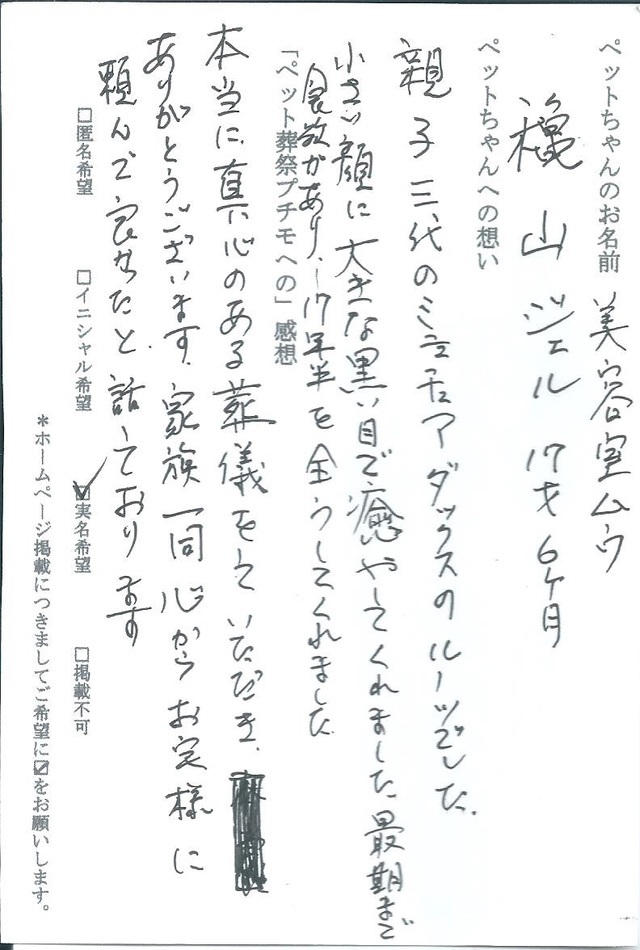 ペットちゃんのお名前 美容室ムウ
山 ジェル 17才6ヶ月
ペットちゃんへの想い
親子三代のミニチュアダックスのルーツでした。
小さい顔に大きな黒い目で癒やしてくれました 最期まで
食欲があり、17年半を全うしてくれました
「ペット葬祭プチモへの」感想
本当に真心のある葬儀をして いただき、
ありがとうございます。家族一同 心からお宅様に
頼んで良かたと、話しております
□匿名希望 □イニシャル希望 ☑実名希望 □掲載不可
＊ホームページ掲載につきましてご希望に☑をお願いします。